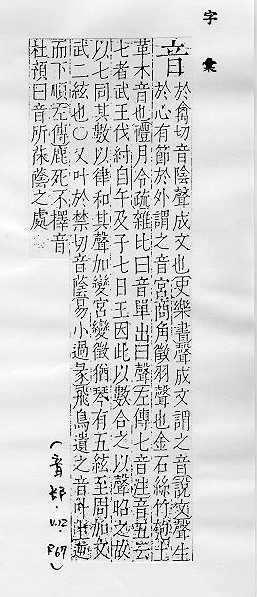 字彙
音
於禽切音陰聲成文也史樂書聲成文謂之音說文聲生
於心有節於外謂之音宮商角徵羽聲也金石絲竹匏土
革木音也禮月令疏雜比曰音單出曰聲左傳七音注音五云
七者武王伐紂自午及子七日王因此以數合之以聲昭之故
以七同其數以律和其聲加變宮變徵猶琴有五絃至周加文
武二絃也〇又叶於禁切音蔭易小過彖飛鳥遺之音
而下順左傳鹿死不擇音
杜預曰音所茠蔭之處